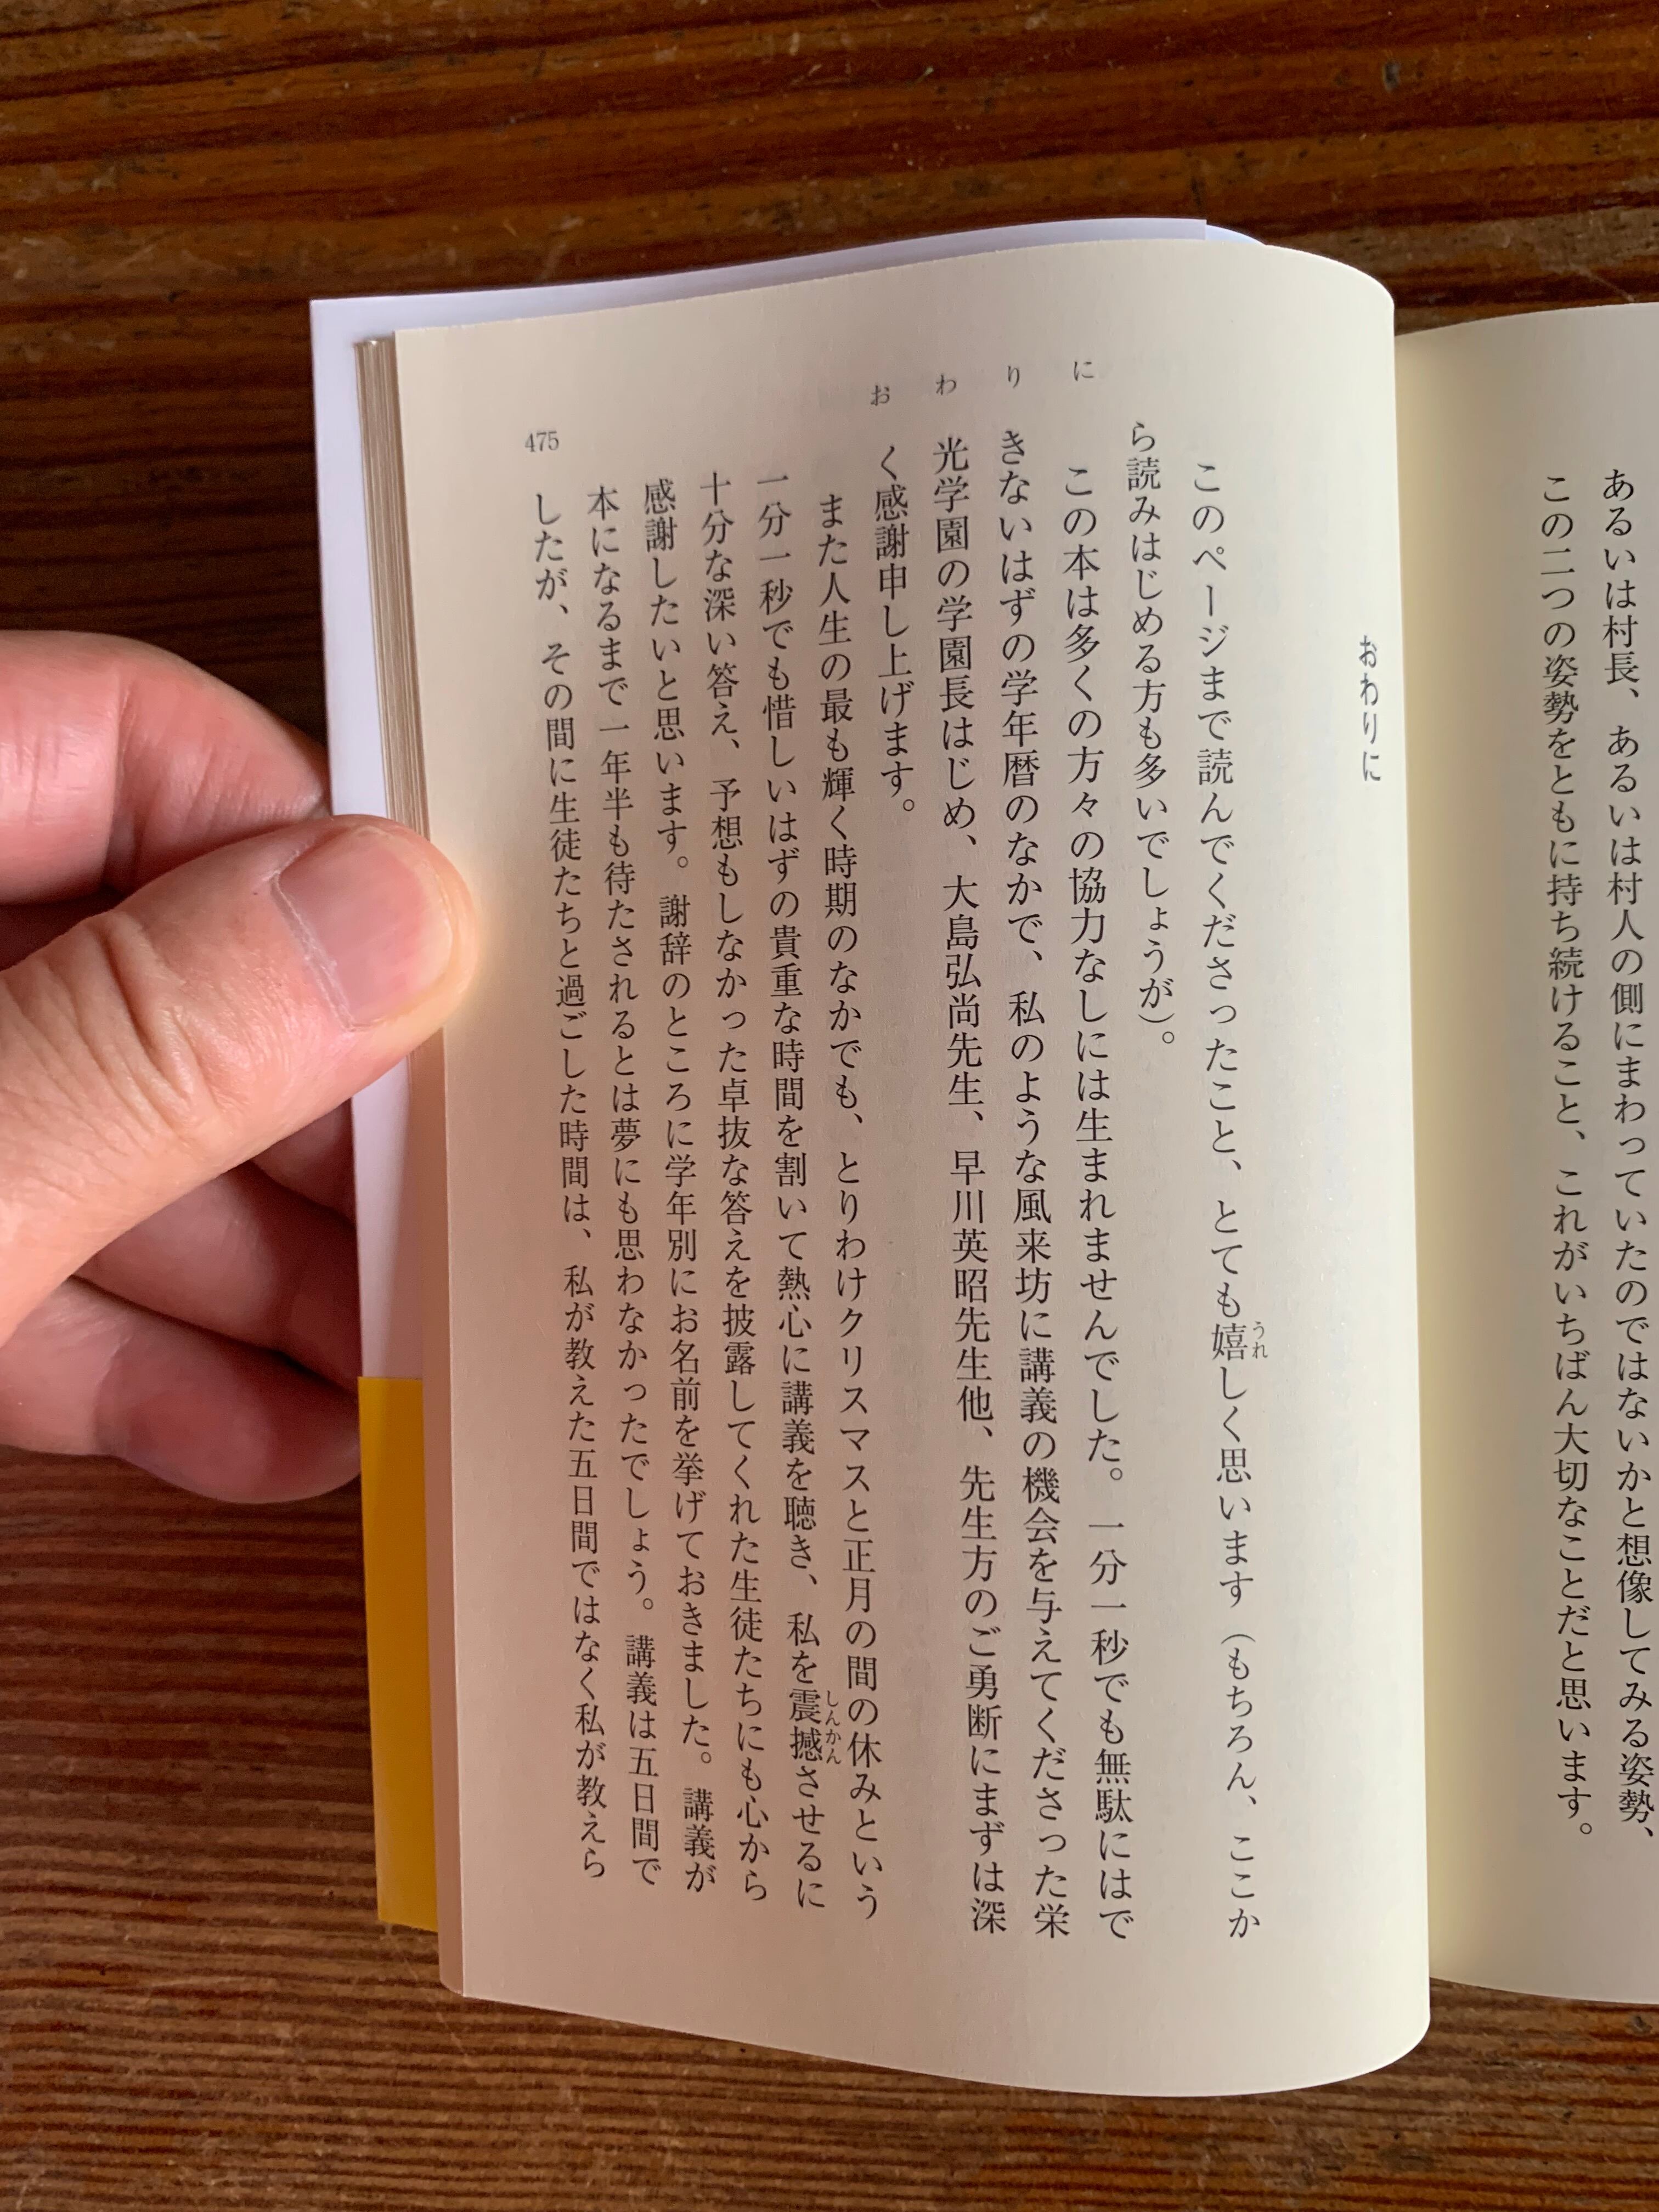 あるいは村長、あるいは村人の側にまわっていたのではないかと想像してみる姿勢、
この二つの姿勢をともに持ち続けること、これがいちばん大切なことだと思います。
おわりに
このページまで読んでくださったこと、とても嬉しく思います（もちろん、ここか
うれ
ら読みはじめる方も多いでしょうが）。
この本は多くの方々の協力なしには生まれませんでした。一分一秒でも無駄にはで
きないはずの学年暦のなかで、私のような風来坊に講義の機会を与えてくださった栄
光学園の学園長はじめ、大島弘尚先生、早川英昭先生他、先生方のご勇断にまずは深
く感謝申し上げます。
また人生の最も輝く時期のなかでも、とりわけクリスマスと正月の間の休みという
一分一秒でも惜しいはずの貴重な時間を割いて熱心に講義を聴き、私を震撼させるに
しんかん
十分な深い答え、予想もしなかった卓抜な答えを披露してくれた生徒たちにも心から
感謝したいと思います。謝辞のところに学年別にお名前を挙げておきました。講義が
本になるまで一年半も待たされるとは夢にも思わなかったでしょう。講義は五日間で
したが、その間に生徒たちと過ごした時間は、私が教えた五日間ではなく私が教えら
おわりに
475